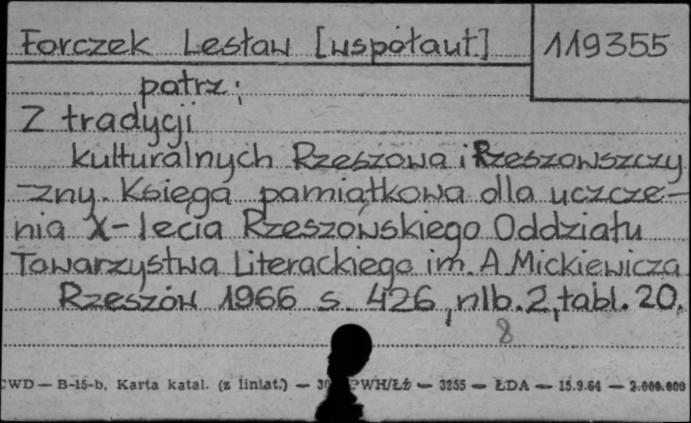 Forczek Lesław [współaut.] 119355
patrz:
Z tradycji
kulturalnych Rzeszowa i Rzeszowszczy
zny. Księga pamiątkowa dla uczcze-
nia X-lecia Rzeszowskiego Oddziału
Towarzystwa Literackiego im. A Mickiewicza
Rzeszów 1966 s. 426, nlb. 2, tabl. 20.
8
CWD — B-15-b, Karta katal. (z liniat.) — PWH/Łź — 3255 — ŁDA — 15.9.64 — 2.000.000